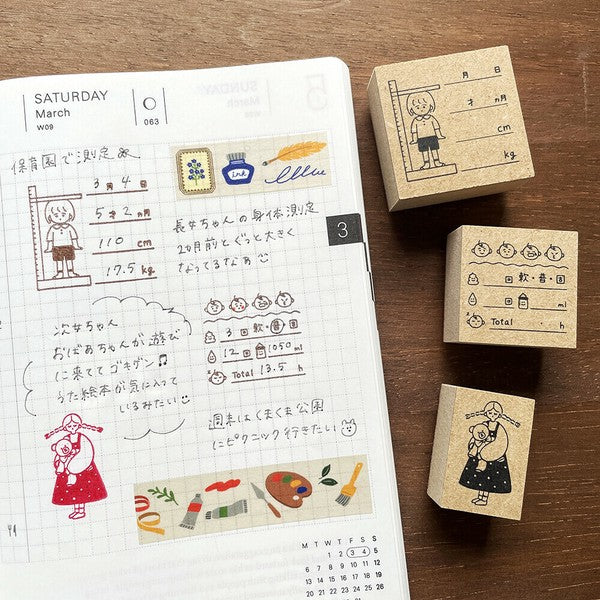 SATURDAY
March
W09
063
保育園で測定
3月 4日
5才2ヵ月
110 cm
17.5 kg
ink
長女ちゃんの身体測定
2ヵ月前とぐっと大きく
なってるなぁ
3
次女ちゃん
おばあちゃんが遊び
に来ててゴキゲン♫
うた絵本が気に入って
いるみたい
3回 軟・普・固
12回 1050ml
Total 13.5 h
週末はくまくま公園
にピクニック行きたい
M T W T F S S
1 2 3 4 5
6 7 8 9 10 11 12
13 14 15 16 17 18 19
20 21 22 23 24 25 26
月 日
才 ヵ月
cm
kg
回 軟・普・固
回 ml
Total . h